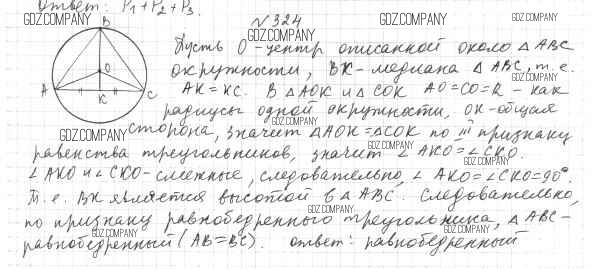 Ответ: P1+P2+P3.
N 324
GDZ.COMPANY GDZ.COMPANY GDZ.COMPANY
B
GDZ.COMPANY
Пусть O - центр описанной около △ABC
O
окружности, BK - медиана △ABC, т.е.
A K C
AK = KC. В △AOK и △COK AO=CO=R - как
GDZ.COMPANY
радиусы одной окружности, OK - общая
GDZ.COMPANY
GDZ.COMPANY
сторона, значит △AOK = △COK по III признаку
GDZ.COMPANY
равенства треугольников, значит ∠AKO = ∠CKO.
GDZ.COMPANY
∠AKO и ∠CKO - смежные, следовательно, ∠AKO = ∠CKO = 90°.
GDZ.COMPANY
Т.е. BK является высотой в △ABC. Следовательно,
GDZ.COMPANY
по признаку равнобедренного треугольника, △ABC -
GDZ.COMPANY GDZ.COMPANY
равнобедренный (AB = BC). Ответ: равнобедренный
GDZ.COMPANY